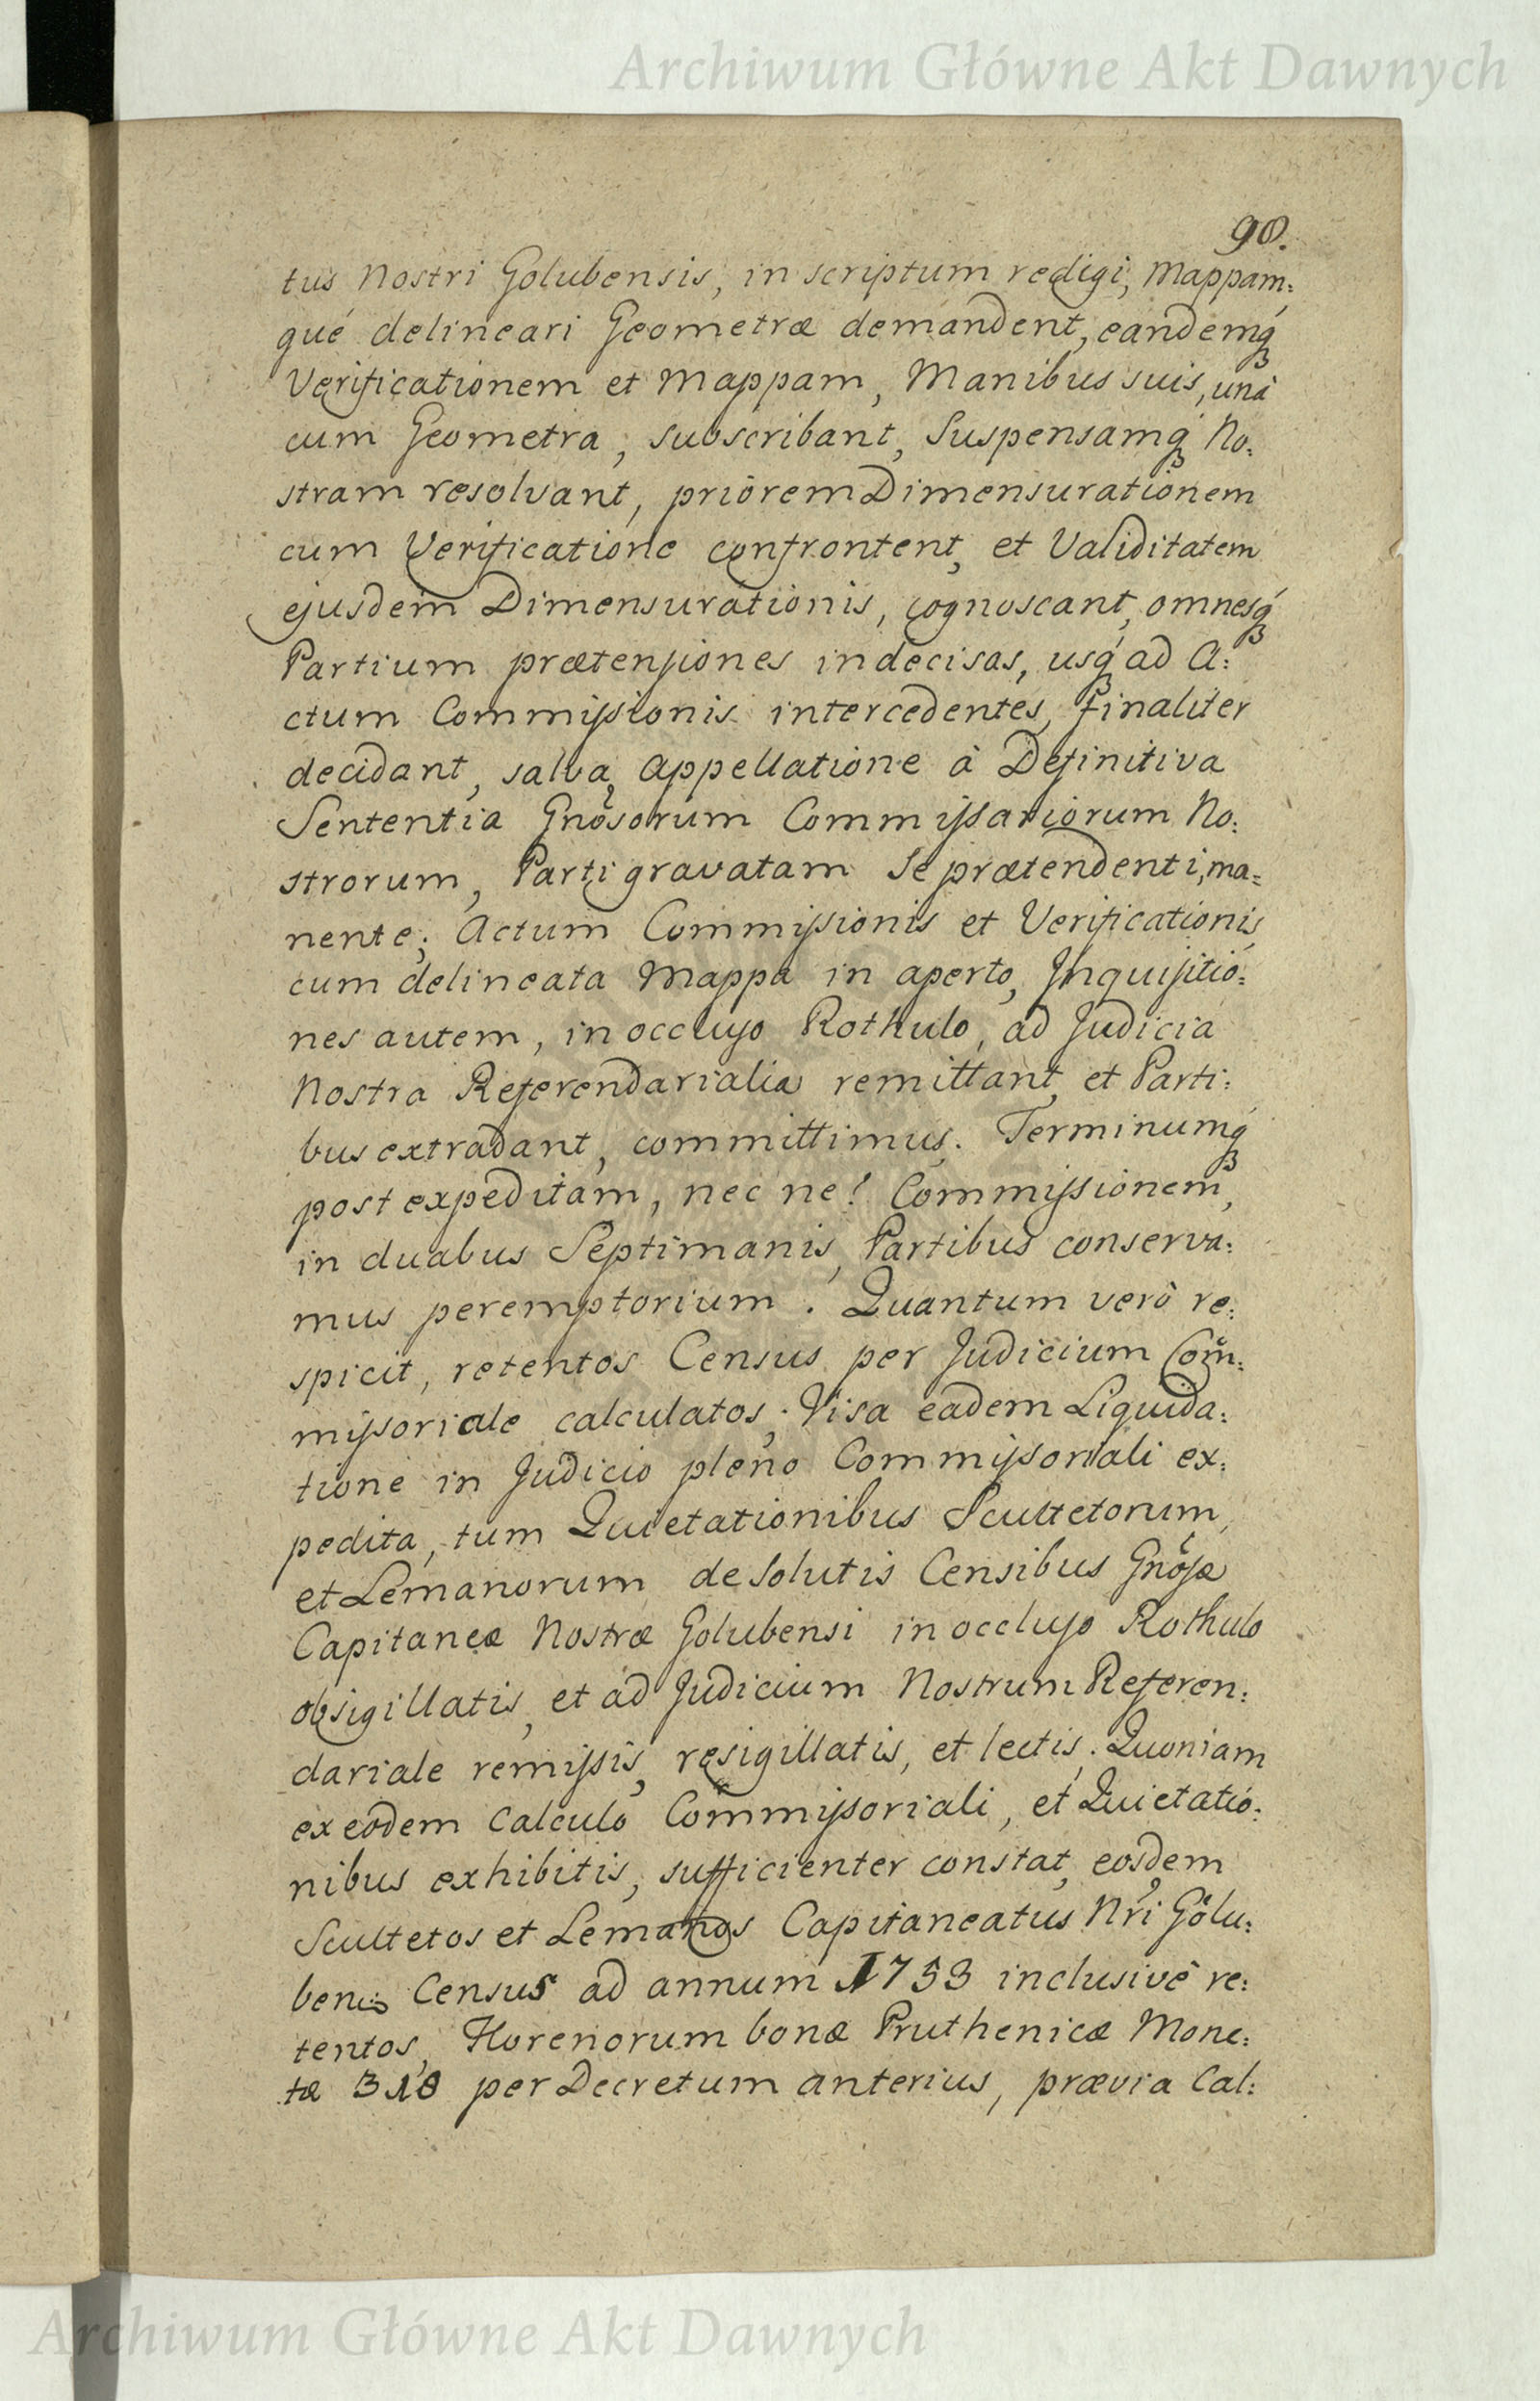 Archiwum Główne Akt Dawnych
90.
tus Nostri Golubensis, in scriptum redigi, Mappam:
qué delineari Geometræ demandent, eandemq́ꝫ
Verificationem et Mappam, Manibus suis, unà
cum Geometra, subscribant, Suspensamq́ꝫ No:
stram resolvant, priorem Dimensurationem
cum Verificatione confrontent, et Validitatem
ejusdem Dimensurationis, cognoscant, omnesq́ꝫ
Partium prætensiones indecisas, usq́ꝫ ad A:
ctum Commissionis intercedentes, finaliter
decidant, salva Appellatione à Definitiva
Sententia Gnõsorum Commissariorum No:
strorum, Parti gravatam se prætendenti, ma:
nente; Actum Commissionis et Verificationis,
cum delineata Mappa in aperto, Inquisitio:
nes autem, in occluso Rothulo, ad Judicia
Nostra Referendarialia remittant, et Parti:
bus extradant, committimus. Terminumq́ꝫ
post expeditam, nec ne! Commissionem,
in duabus Septimanis, Partibus conserva:
mus peremptorium. Quantum verò re:
spicit, retentos Census per Judicium Com̃:
missoriale calculatos; Visa eadem Liquida:
tione in Judicio pleno Commissoriali ex:
pedita, tum Quietationibus Scultetorum,
et Lemanorum de Solutis Censibus Gnõsæ
Capitaneæ Nostræ Golubensi in occluso Rothulo
obsigillatis, et ad Judicium Nostrum Referen:
dariale remissis, resigillatis, et lectis; Quoniam
ex eodem Calculo Commissoriali, et Quietatio:
nibus exhibitis, sufficienter constat, eosdem
Scultetos et Lemanos Capitaneatus Nrĩ Golu:
bens Census ad annum 1753 inclusivè re:
tentos, Florenorum bonæ Pruthenicæ Mone:
tæ 318 per Decretum anterius, prævia Cal:
Archiwum Główne Akt Dawnych